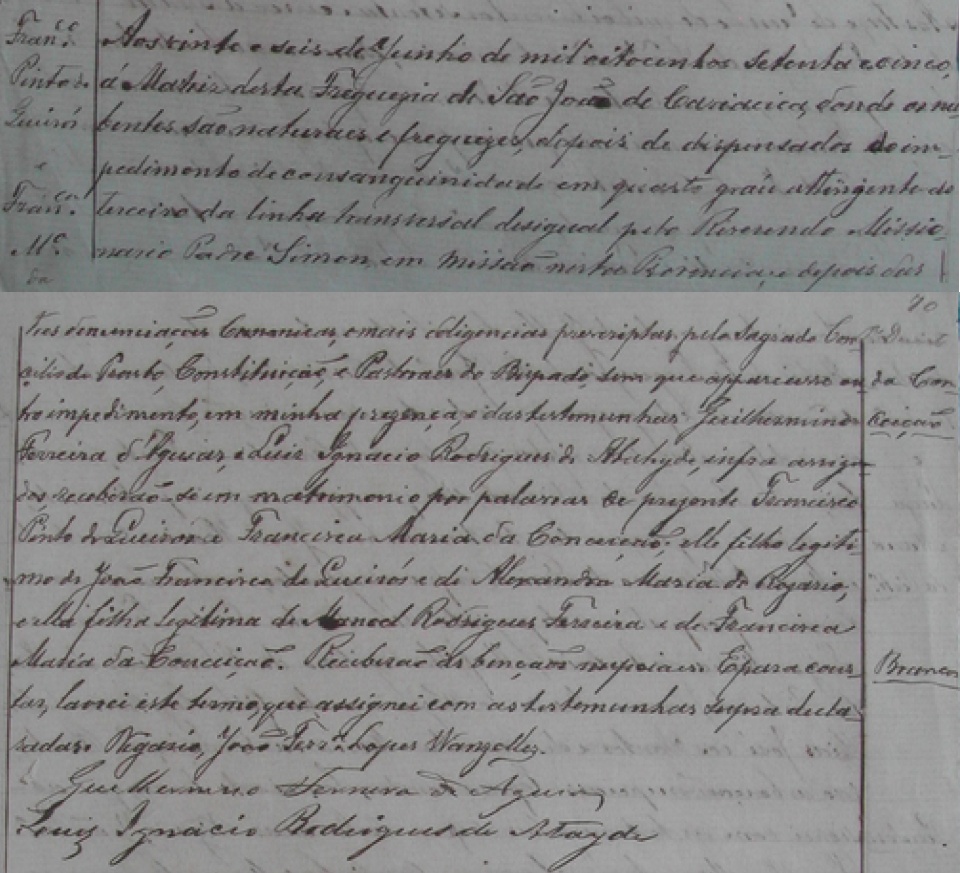 Franc.co
Pinto de
Queiró
e
Franc.ca
M.a
da
Aos vinte e seis de Junho de mil oitocentos setenta e cinco,
á Matriz desta Freguezia de São João de Cariacica, donde os nu-
bentes são naturaes e freguezes, depois de dispensados do im-
pedimento de consanguinidade em quarto gráu attingente ao
terceiro da linha transversal desigual pelo Reverendo Missio-
nario Padre Simon em missão nesta Provincia, e depois das
90
tres denunciações Canonicas, e mais deligencias prescriptas pelo Sagrado Con-
cilio de Trento, Constituição, e Pastoraes do Bispado, sem que apparecesse ou-
tro impedimento, em minha prezença, e das testemunhas Guilhermino
Ferreira d'Aguiar, e Luiz Ignacio Rodrigues de Atahyde, infra assigna-
dos, receberão-se em matrimonio por palavras de prezente Francisco
Pinto de Queiros e Francisca Maria da Conceição; elle filho legiti-
mo de João Francisco de Queirós e de Alexandra Maria do Rozario;
e ella filha legitima de Manoel Rodrigues Ferreira e de Francisca
Maria da Conceição. Receberão as bençãos nupciaes. E para cons-
tar, lavrei este termo, que assignei com as testemunhas supra decla-
radas. O Vigario, João Ferr.a Lopes Wanzelles.
Guilhermino Ferreira d Aguiar
Louiz Ignacio Rodrigues de Atayde
da Con-
ceição
Brancos